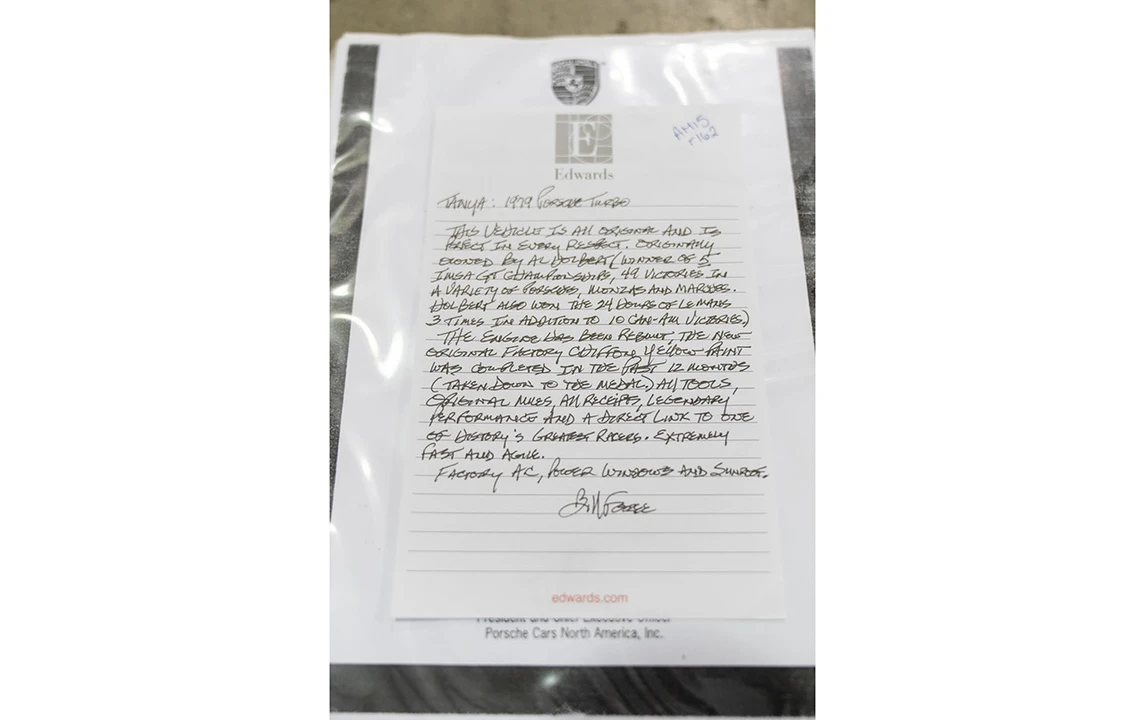 E
Edwards
AM15
r162
TANYA: 1979 PORSCHE TURBO
THIS VEHICLE IS ALL ORIGINAL AND IS
PERFECT IN EVERY RESPECT. ORIGINALLY
OWNED BY AL HOLBERT (WINNER OF 5
IMSA GT CHAMPIONSHIPS, 49 VICTORIES IN
A VARIETY OF PORSCHES, MONZAS AND MARCHES.
HOLBERT ALSO WON THE 24 HOURS OF LEMANS
3 TIMES IN ADDITION TO 10 CAN-AM VICTORIES.)
THE ENGINE HAS BEEN REBUILT, THE NEW
ORIGINAL FACTORY CHIFFON YELLOW PAINT
WAS COMPLETED IN THE PAST 12 MONTHS
(TAKEN DOWN TO THE MEDAL.) ALL TOOLS,
ORIGINAL MILES, ALL RECEIPTS, LEGENDARY
PERFORMANCE AND A DIRECT LINK TO ONE
OF HISTORY'S GREATEST RACERS. EXTREMELY
FAST AND AGILE.
FACTORY AC, POWER WINDOWS AND SUNROOF.
Bill
edwards.com
President and Chief Executive Officer
Porsche Cars North America, Inc.